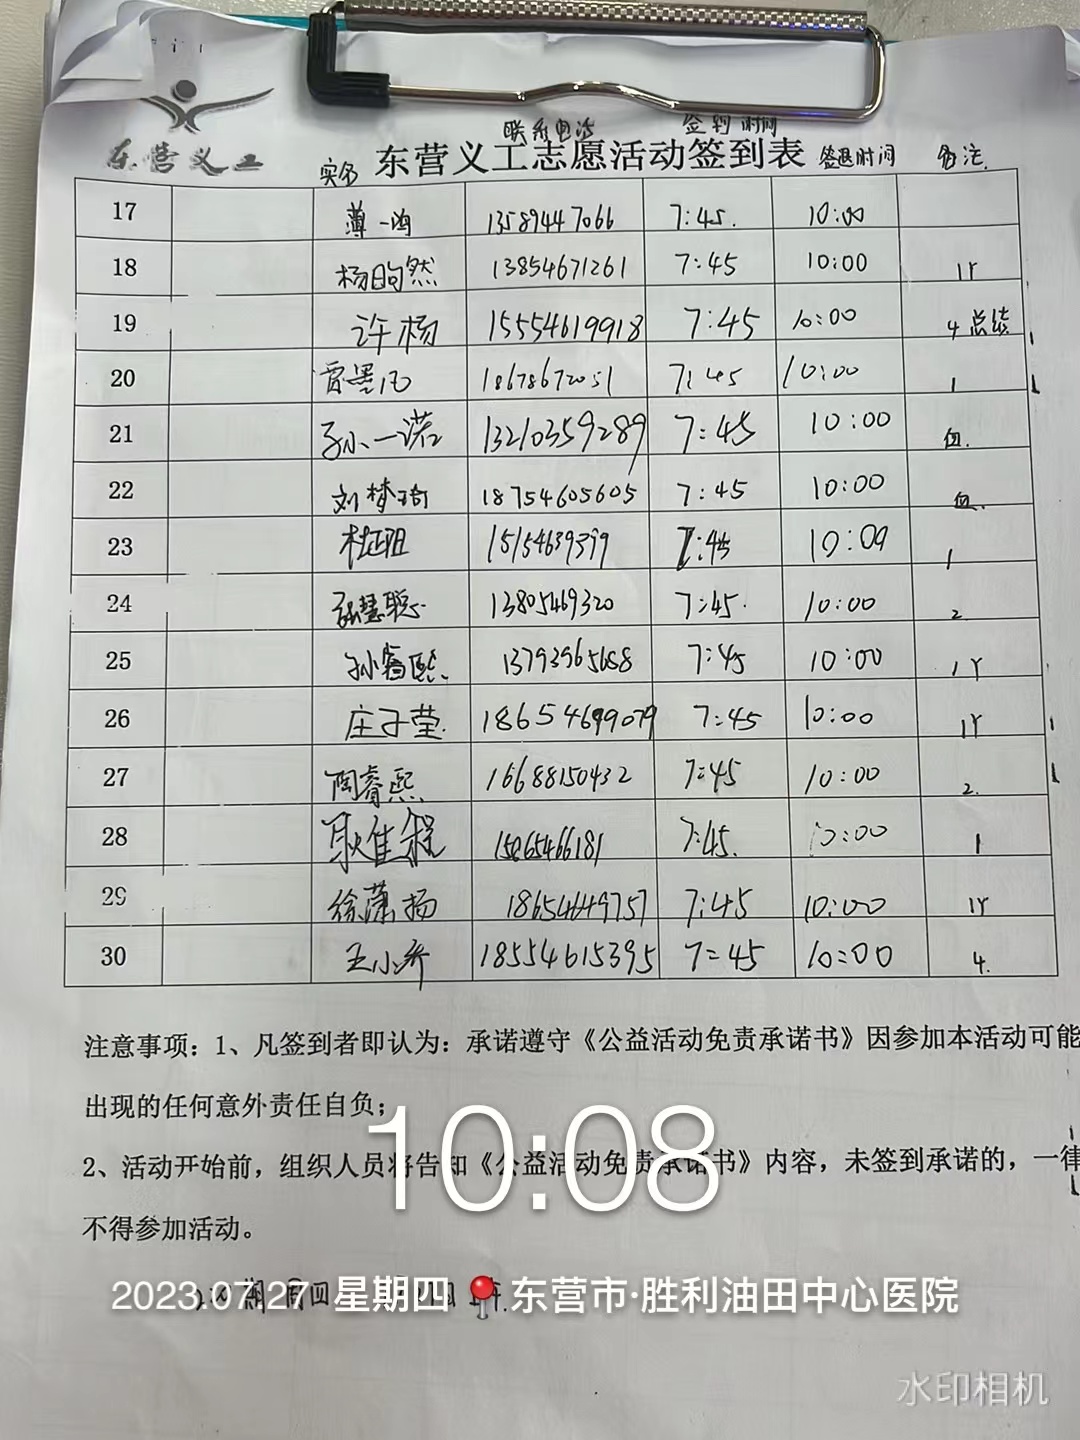 东营义工
东营义工志愿活动签到表
实名 联系电话 签到时间 签退时间 备注
17 薄一鸣 13589447066 7:45. 10:00
18 杨昫然 13854671261 7:45 10:00 1Y
19 许杨 15554619918 7:45 10:00 4 总结
20 18678672051 7:45 10:00 1
21 孙一诺 13210359289 7:45 10:00 血.
22 刘梦琦 18754605605 7:45 10:00 血.
23 7:45 10:00 1
24 张慧聪 13805469320 7:45. 10:00 2
25 孙睿熙 7:45 10:00 1Y
26 庄子莹 18654699079 7:45 10:00 1Y
27 陶睿熙 16688150432 7:45 10:00 2.
28 耿佳程 15065466181 7:45. 10:00 1
29 徐潇扬 18654649757 7:45 10:00 1Y
30 王小乔 18554615395 7:45 10:00 4.
注意事项：1、凡签到者即认为：承诺遵守《公益活动免责承诺书》因参加本活动可能
出现的任何意外责任自负；
2、活动开始前，组织人员将告知《公益活动免责承诺书》内容，未签到承诺的，一律
不得参加活动。
10:08
2023.07.27 星期四 东营市·胜利油田中心医院
水印相机